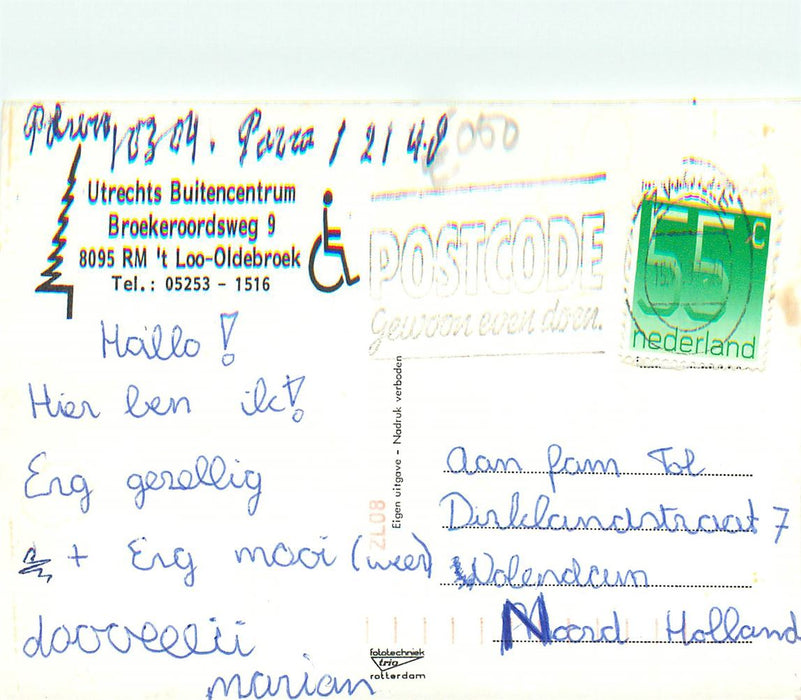 Utrechts Buitencentrum
Broekeroordsweg 9
8095 RM 't Loo-Oldebroek
Tel.: 05253 - 1516
POSTCODE
Gewoon even doen.
55 c
nederland
Hallo!
Hier ben ik!
Erg gezellig
+ Erg mooi (weer)
doooeeiii
marian
Eigen uitgave - Nadruk verboden
ZL08
fototechniek
trio
rotterdam
Aan fam Tol
Dirklandstraat 7
Volendam
Noord Holland